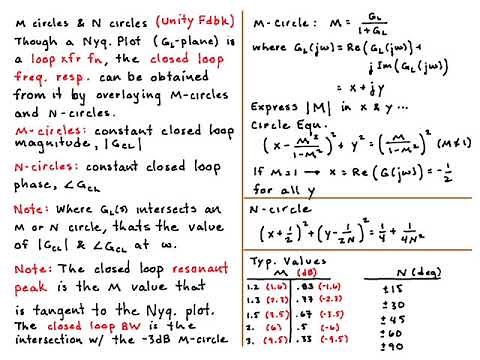 M circles & N circles (Unity Fdbk)
Though a Nyq. Plot (G_L-plane) is
a loop xfr fn, the closed loop
freq. resp. can be obtained
from it by overlaying M-circles
and N-circles.
M-circles: constant closed loop
magnitude, |G_CL|
N-circles: constant closed loop
phase, ∠G_CL
Note: Where G_L(s) intersects an
M or N circle, thats the value
of |G_CL| & ∠G_CL at ω.
Note: The closed loop resonant
peak is the M value that
is tangent to the Nyq. plot.
The closed loop BW is the
intersection w/ the -3dB M-circle
M-Circle: M = G_L / (1+G_L)
where G_L(jω) = Re(G_L(jω)) +
j Im(G_L(jω))
= x + jy
Express |M| in x & y ...
Circle Equ.
(x - M²/(1-M²))² + y² = (M/(1-M²))² (M≠1)
If M=1 → x = Re(G(jω)) = -1/2
for all y
N-circle
(x + 1/2)² + (y - 1/2N)² = 1/4 + 1/4N²
Typ. Values
M (dB) N (deg)
1.2 (1.6) .83 (-1.6) ±15
1.3 (2.3) .77 (-2.3) ±30
1.5 (3.5) .67 (-3.5) ±45
2. (6) .5 (-6) ±60
3. (9.5) .33 (-9.5) ±90